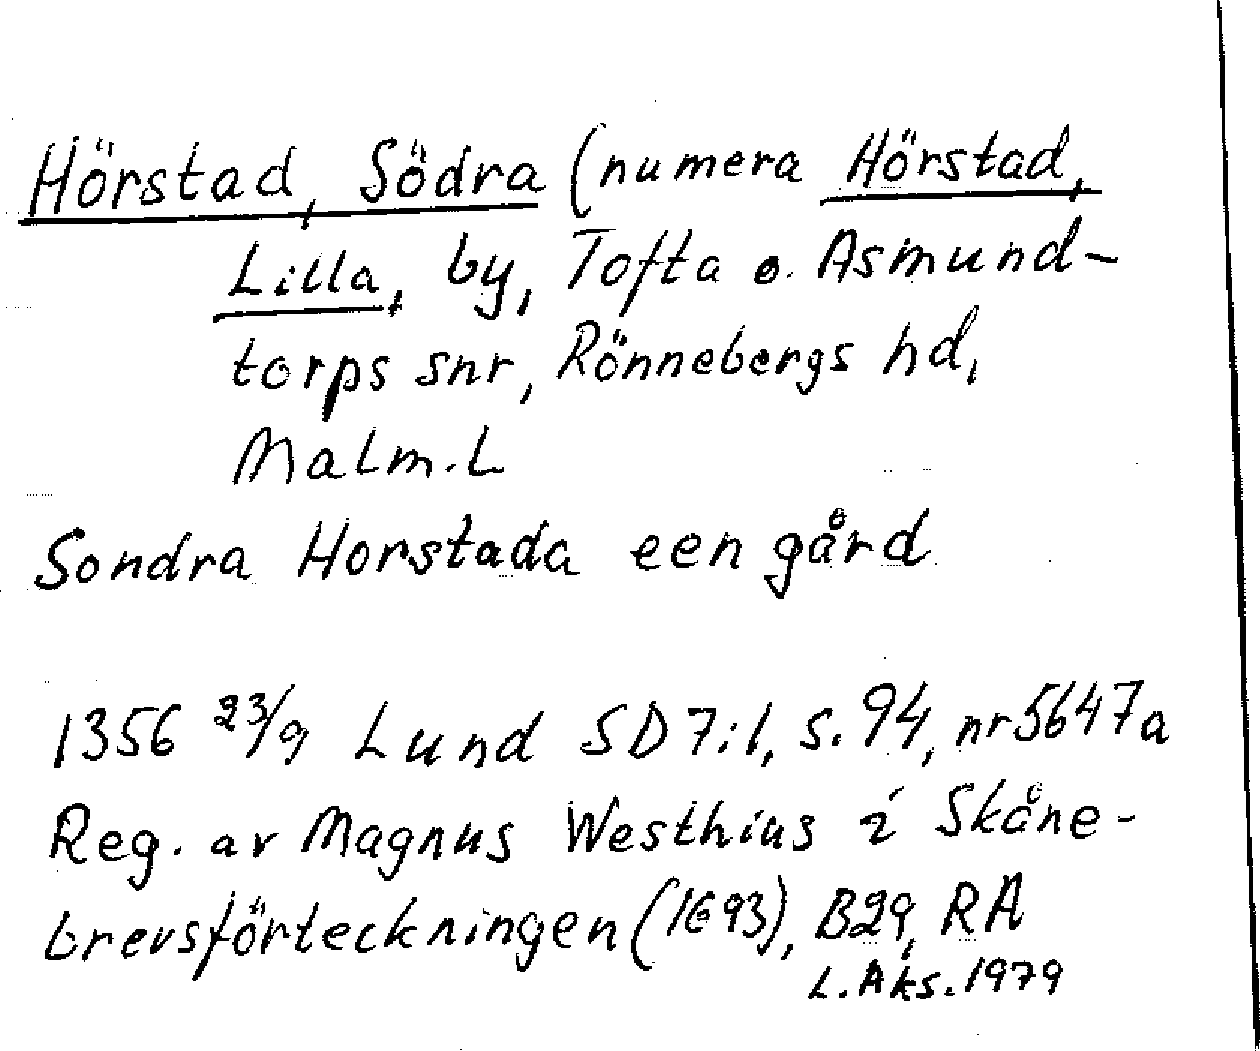 Hörstad, Södra (numera Hörstad,
Lilla, by, Tofta o. Asmund-
torps snr, Rönnebergs hd,
Malm.L
Sondra Horstada een gård
1356 23/9 Lund SD 7:1, s. 94, nr 5647a
Reg. av Magnus Westhius i Skåne-
brevsförteckningen (1693), B29, RA
L. Aks. 1979